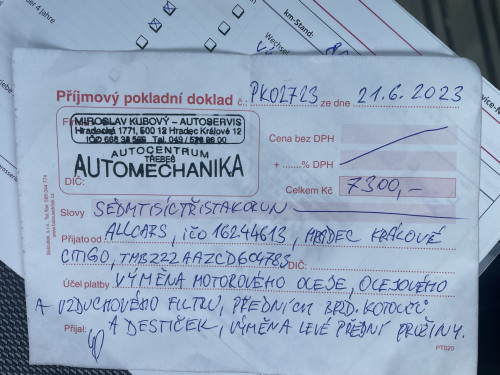 km-Stand:
Příjmový pokladní doklad č.: PK02723 ze dne 21.6.2023
MIROSLAV KUBOVÝ – AUTOSERVIS
Hradecká 1771, 500 12 Hradec Králové 12
AUTOCENTRUM
TŘEBEŠ
AUTOMECHANIKA
DIČ:
Cena bez DPH
+ ........% DPH
Celkem Kč 7300,-
Slovy SEDMTISÍCTŘISTAKORUN
Přijato od ALLCARS, IČO 16244613, HRADEC KRÁLOVÉ
CITIGO, TMBZZZAAZCD604783 DIČ:
Účel platby VÝMĚNA MOTOROVÉHO OLEJE, OLEJOVÉHO
A VZDUCHOVÉHO FILTRU, PŘEDNÍCH BRZD. KOTOUČŮ
Přijal: A DESTIČEK, VÝMĚNA LEVÉ PŘEDNÍ PRUŽINY.
PT020